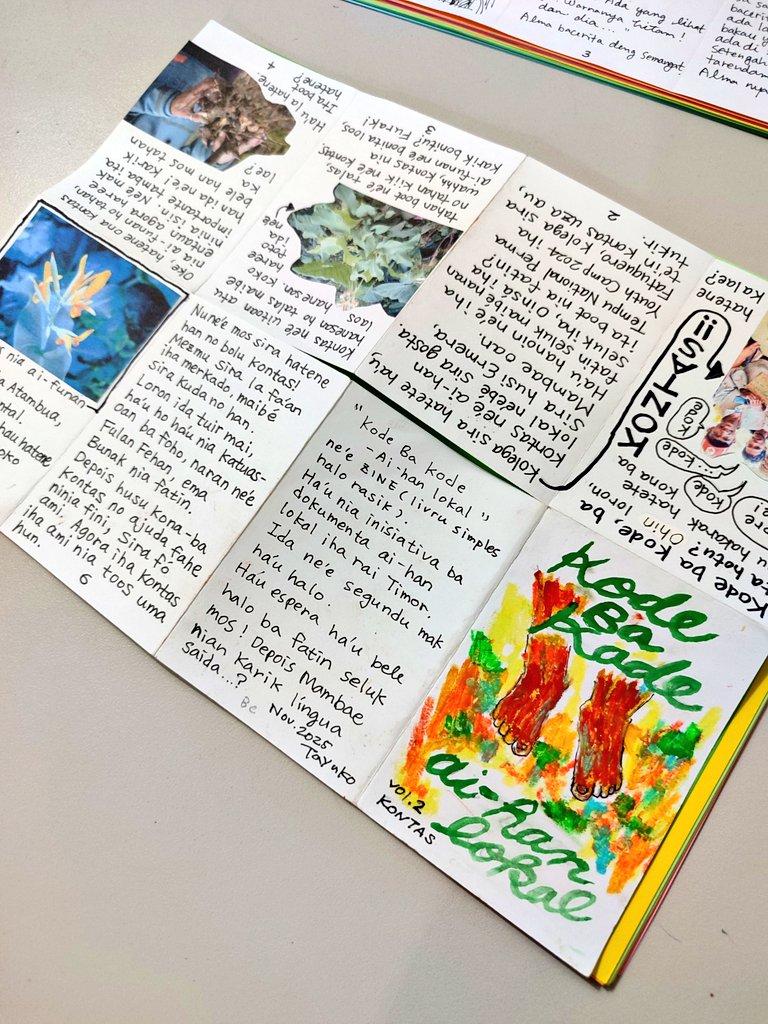 Kode
Ba
Kade
ai-han
lokal
vol.2
KONTAS
Kode ba Kode, ba
hetu? Ohin loron,
hatarak hatete kona ba
KONTAS!!
kode
kode
hatene
ka lae?
Kolega sira hatete hau,
Kontas ne'e ai-han
lokal ne'ebé sira gosta.
Sira husi Ermera,
Mambae oan.
Ha'u hanoin ne'e iha
fatin seluk maibé naran
seluk iha. Oinsá iha
ita boot nia fatin?
Tempu National Perma
Youth Camp 2024 iha
Fatuquero, kolega sira
te'in Kontas uza au,
tukir.
2
Kontas ne'e uitoan atu
hanesan ho talas maibe
laos hanesan koko
haree
toos
ida
ne'e
tahan boot ne'e talas,
no tahan kiik ne'e kontas,
uahh, kontas nia
ai-funan ne'e bonita loos,
karik bonitu? Furak!
3
Oke, hatene ona kontas
nia ai-funan ho tahan,
entaun agora haree
ninia isin. Ne'e mak
importante tamba ita
han ida ne'e! Karik
bele han mos tahan
ka lae?
Ha'u la hatene.
Ita boot
hatene?
4
nia ai-funan
Atambua,
ntal.
hau hatene
oko
Nune'e mos sira hatene
han no bolu kontas!
Mezmu sira la fa'an
iha merkado, maibé
Sira kuda no han.
Loron ida tuir mai,
ha'u ho ha'u nia katuas-
oan ba foho, naran ne'e
Fulan Fehan, ema
Bunak nia fatin.
Depois husu kona-ba
Kontas no ajuda fahe
ninia fini. Sira fó
ami. Agora iha kontas
iha ami nia toos uma
hun.
6
"Kode Ba Kode
-Ai-han lokal"
ne'e ZINE (livru simples
halo rasik).
Ha'u nia inisiativa ba
dokumenta ai-han
lokal iha rai Timor.
Ida ne'e segundu mak
ha'u halo.
Ha'u espera ha'u bele
halo ba fatin seluk
mos! Depois Mambae
nian karik língua
saida...?
Nov.2025
Tayuko
Ada yang lihat
Warnanya hitam!
dan dia..."
Alma bacerita deng semangat
3
bacerit
ada la
bakau y
ada di
Setengah
tarendam
Alma nya